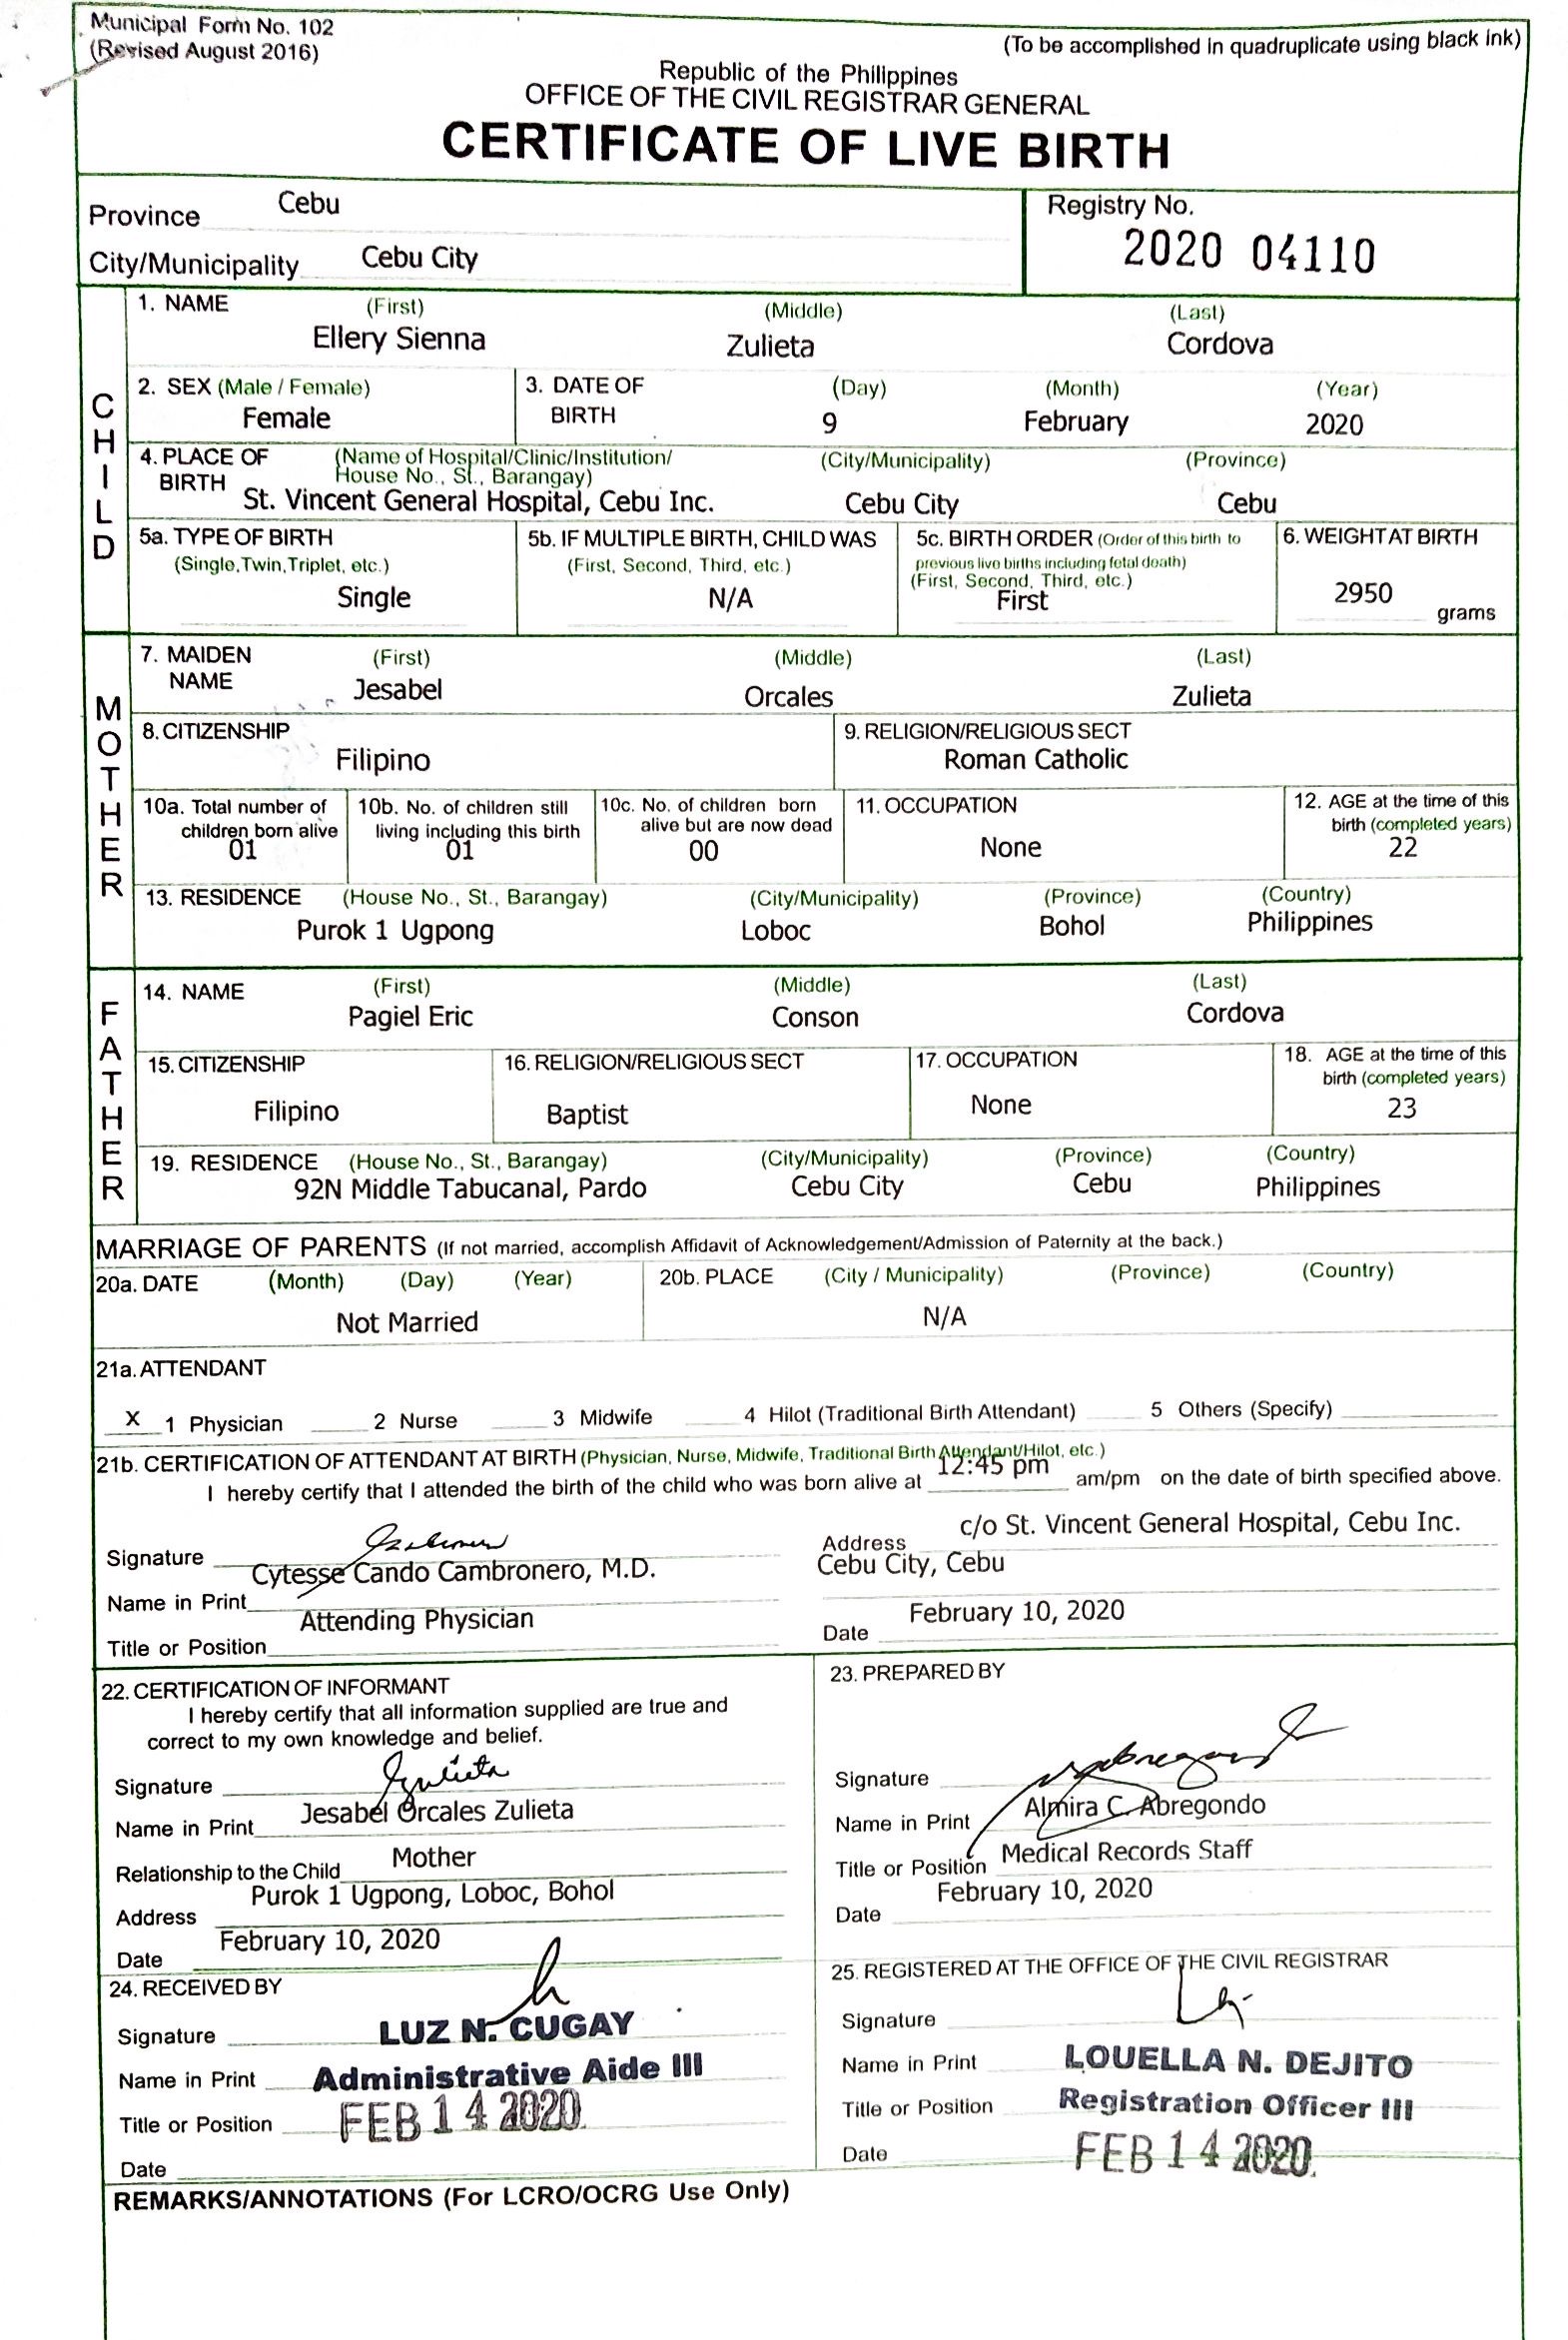 Municipal Form No. 102
(Revised August 2016)
(To be accomplished in quadruplicate using black ink)
Republic of the Philippines
OFFICE OF THE CIVIL REGISTRAR GENERAL
CERTIFICATE OF LIVE BIRTH
Province Cebu
City/Municipality Cebu City
Registry No.
2020 04110
CHILD
1. NAME (First) (Middle) (Last)
Ellery Sienna Zulieta Cordova
2. SEX (Male / Female)
Female
3. DATE OF BIRTH (Day) (Month) (Year)
9 February 2020
4. PLACE OF BIRTH (Name of Hospital/Clinic/Institution/ House No., St., Barangay) (City/Municipality) (Province)
St. Vincent General Hospital, Cebu Inc. Cebu City Cebu
5a. TYPE OF BIRTH
(Single,Twin,Triplet, etc.)
Single
5b. IF MULTIPLE BIRTH, CHILD WAS
(First, Second, Third, etc.)
N/A
5c. BIRTH ORDER (Order of this birth to
previous live births including fetal death)
(First, Second, Third, etc.)
First
6. WEIGHT AT BIRTH
2950
grams
MOTHER
7. MAIDEN NAME (First) (Middle) (Last)
Jesabel Orcales Zulieta
8. CITIZENSHIP
Filipino
9. RELIGION/RELIGIOUS SECT
Roman Catholic
10a. Total number of
children born alive
01
10b. No. of children still
living including this birth
01
10c. No. of children born
alive but are now dead
00
11. OCCUPATION
None
12. AGE at the time of this
birth (completed years)
22
13. RESIDENCE (House No., St., Barangay) (City/Municipality) (Province) (Country)
Purok 1 Ugpong Loboc Bohol Philippines
FATHER
14. NAME (First) (Middle) (Last)
Pagiel Eric Conson Cordova
15. CITIZENSHIP
Filipino
16. RELIGION/RELIGIOUS SECT
Baptist
17. OCCUPATION
None
18. AGE at the time of this
birth (completed years)
23
19. RESIDENCE (House No., St., Barangay) (City/Municipality) (Province) (Country)
92N Middle Tabucanal, Pardo Cebu City Cebu Philippines
MARRIAGE OF PARENTS (If not married, accomplish Affidavit of Acknowledgement/Admission of Paternity at the back.)
20a. DATE (Month) (Day) (Year)
Not Married
20b. PLACE (City / Municipality) (Province) (Country)
N/A
21a. ATTENDANT
X 1 Physician 2 Nurse 3 Midwife 4 Hilot (Traditional Birth Attendant) 5 Others (Specify)
21b. CERTIFICATION OF ATTENDANT AT BIRTH (Physician, Nurse, Midwife, Traditional Birth Attendant/Hilot, etc.)
I hereby certify that I attended the birth of the child who was born alive at 12:45 pm am/pm on the date of birth specified above.
Signature
Name in Print Cytesse Cando Cambronero, M.D.
Title or Position Attending Physician
Address c/o St. Vincent General Hospital, Cebu Inc.
Cebu City, Cebu
Date February 10, 2020
22. CERTIFICATION OF INFORMANT
I hereby certify that all information supplied are true and
correct to my own knowledge and belief.
Signature
Name in Print Jesabel Orcales Zulieta
Relationship to the Child Mother
Address Purok 1 Ugpong, Loboc, Bohol
Date February 10, 2020
23. PREPARED BY
Signature
Name in Print Almira C. Abregondo
Title or Position Medical Records Staff
Date February 10, 2020
24. RECEIVED BY
Signature LUZ N. CUGAY
Name in Print Administrative Aide III
Title or Position FEB 14 2020
Date
25. REGISTERED AT THE OFFICE OF THE CIVIL REGISTRAR
Signature
Name in Print LOUELLA N. DEJITO
Title or Position Registration Officer III
Date FEB 14 2020
REMARKS/ANNOTATIONS (For LCRO/OCRG Use Only)